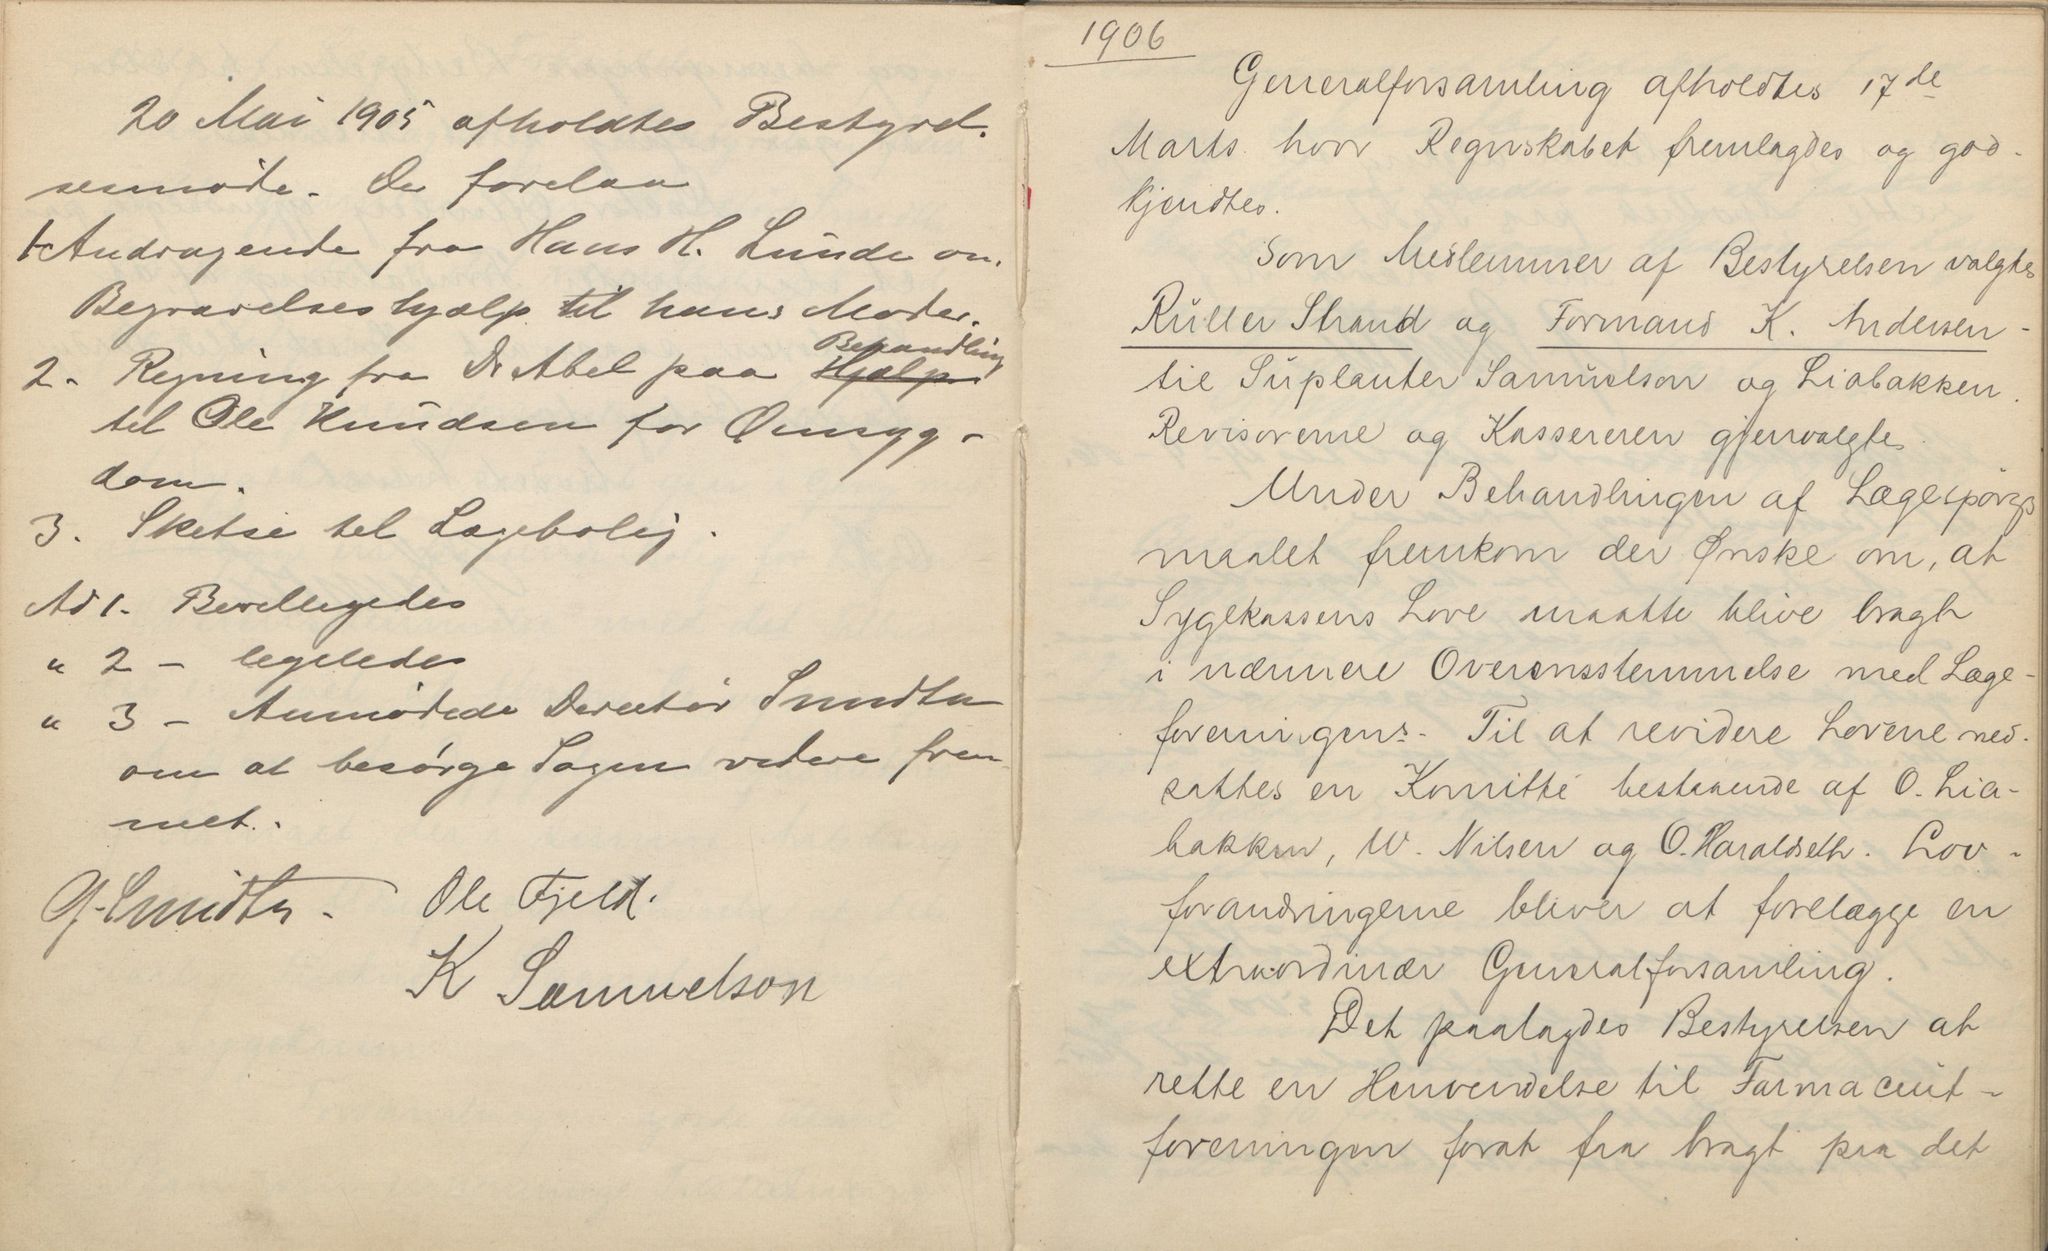 20 Mai 1905 afholdtes Bestyrel-
sesmøde. Der forelaa
1. Andragende fra Hans H. Lunde om
Begravelseshjælp til hans Moder.
2. Regning fra Dr Abel paa Hjælp Behandling
til Ole Knudsen for Øiensyg-
dom.
3. Skitse til Lægebolig.
Ad 1. Bevilligedes
" 2 - ligeledes
" 3 - Anmodede Direktør Smidth
om at besørge Sagen videre frem
met.
G. Smidth.
Ole Fjeld.
K Samuelson
1906
Generalforsamling afholdtes 17de
Marts hvor Regnskabet fremlagdes og god-
kjendtes.
Som Medlemmer af Bestyrelsen valgtes
Rüller Strand og Formand K. Andersen -
til Suplanter Samuelson og Liabakken.
Revisorerne og Kassereren gjenvalgtes
Under Behandlingen af Lægespørgs
maalet fremkom der Ønske om, at
Sygekassens Love maatte blive bragt
i nærmere Overensstemmelse med Læge-
foreningens. Til at revidere Lovene ned-
sattes en Komitté bestaaende af O. Lia-
bakken, W. Nilsen og O. Haraldseth. Lov-
forandringerne bliver at forelægge en
extraordinær Generalforsamling.
Det paalagdes Bestyrelsen at
rette en Henvendelse til Farmaceut-
foreningen forat faa bragt paa det